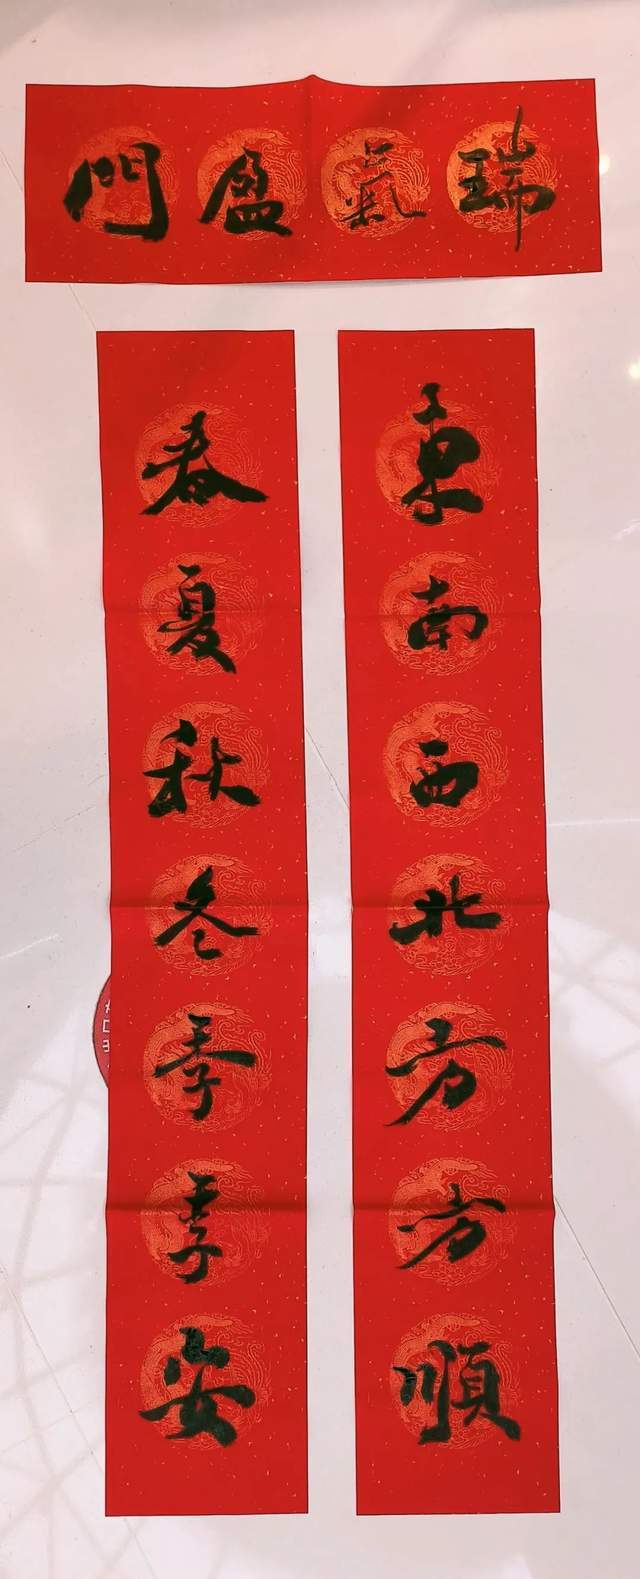 瑞氣盈門
東南西北方方順
春夏秋冬季季安